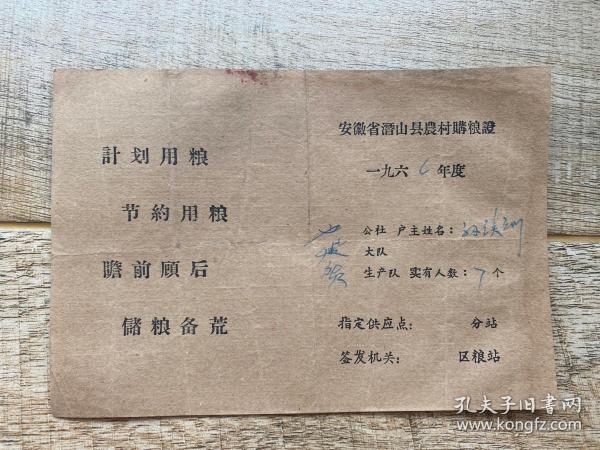 計划用粮
节約用粮
瞻前顾后
儲粮备荒
安徽省潛山县農村購粮證
一九六6年度
公社 户主姓名：
大队
生产队 实有人数：7个
指定供应点： 分站
签发机关： 区粮站
孔夫子旧书网
www.kongfz.com